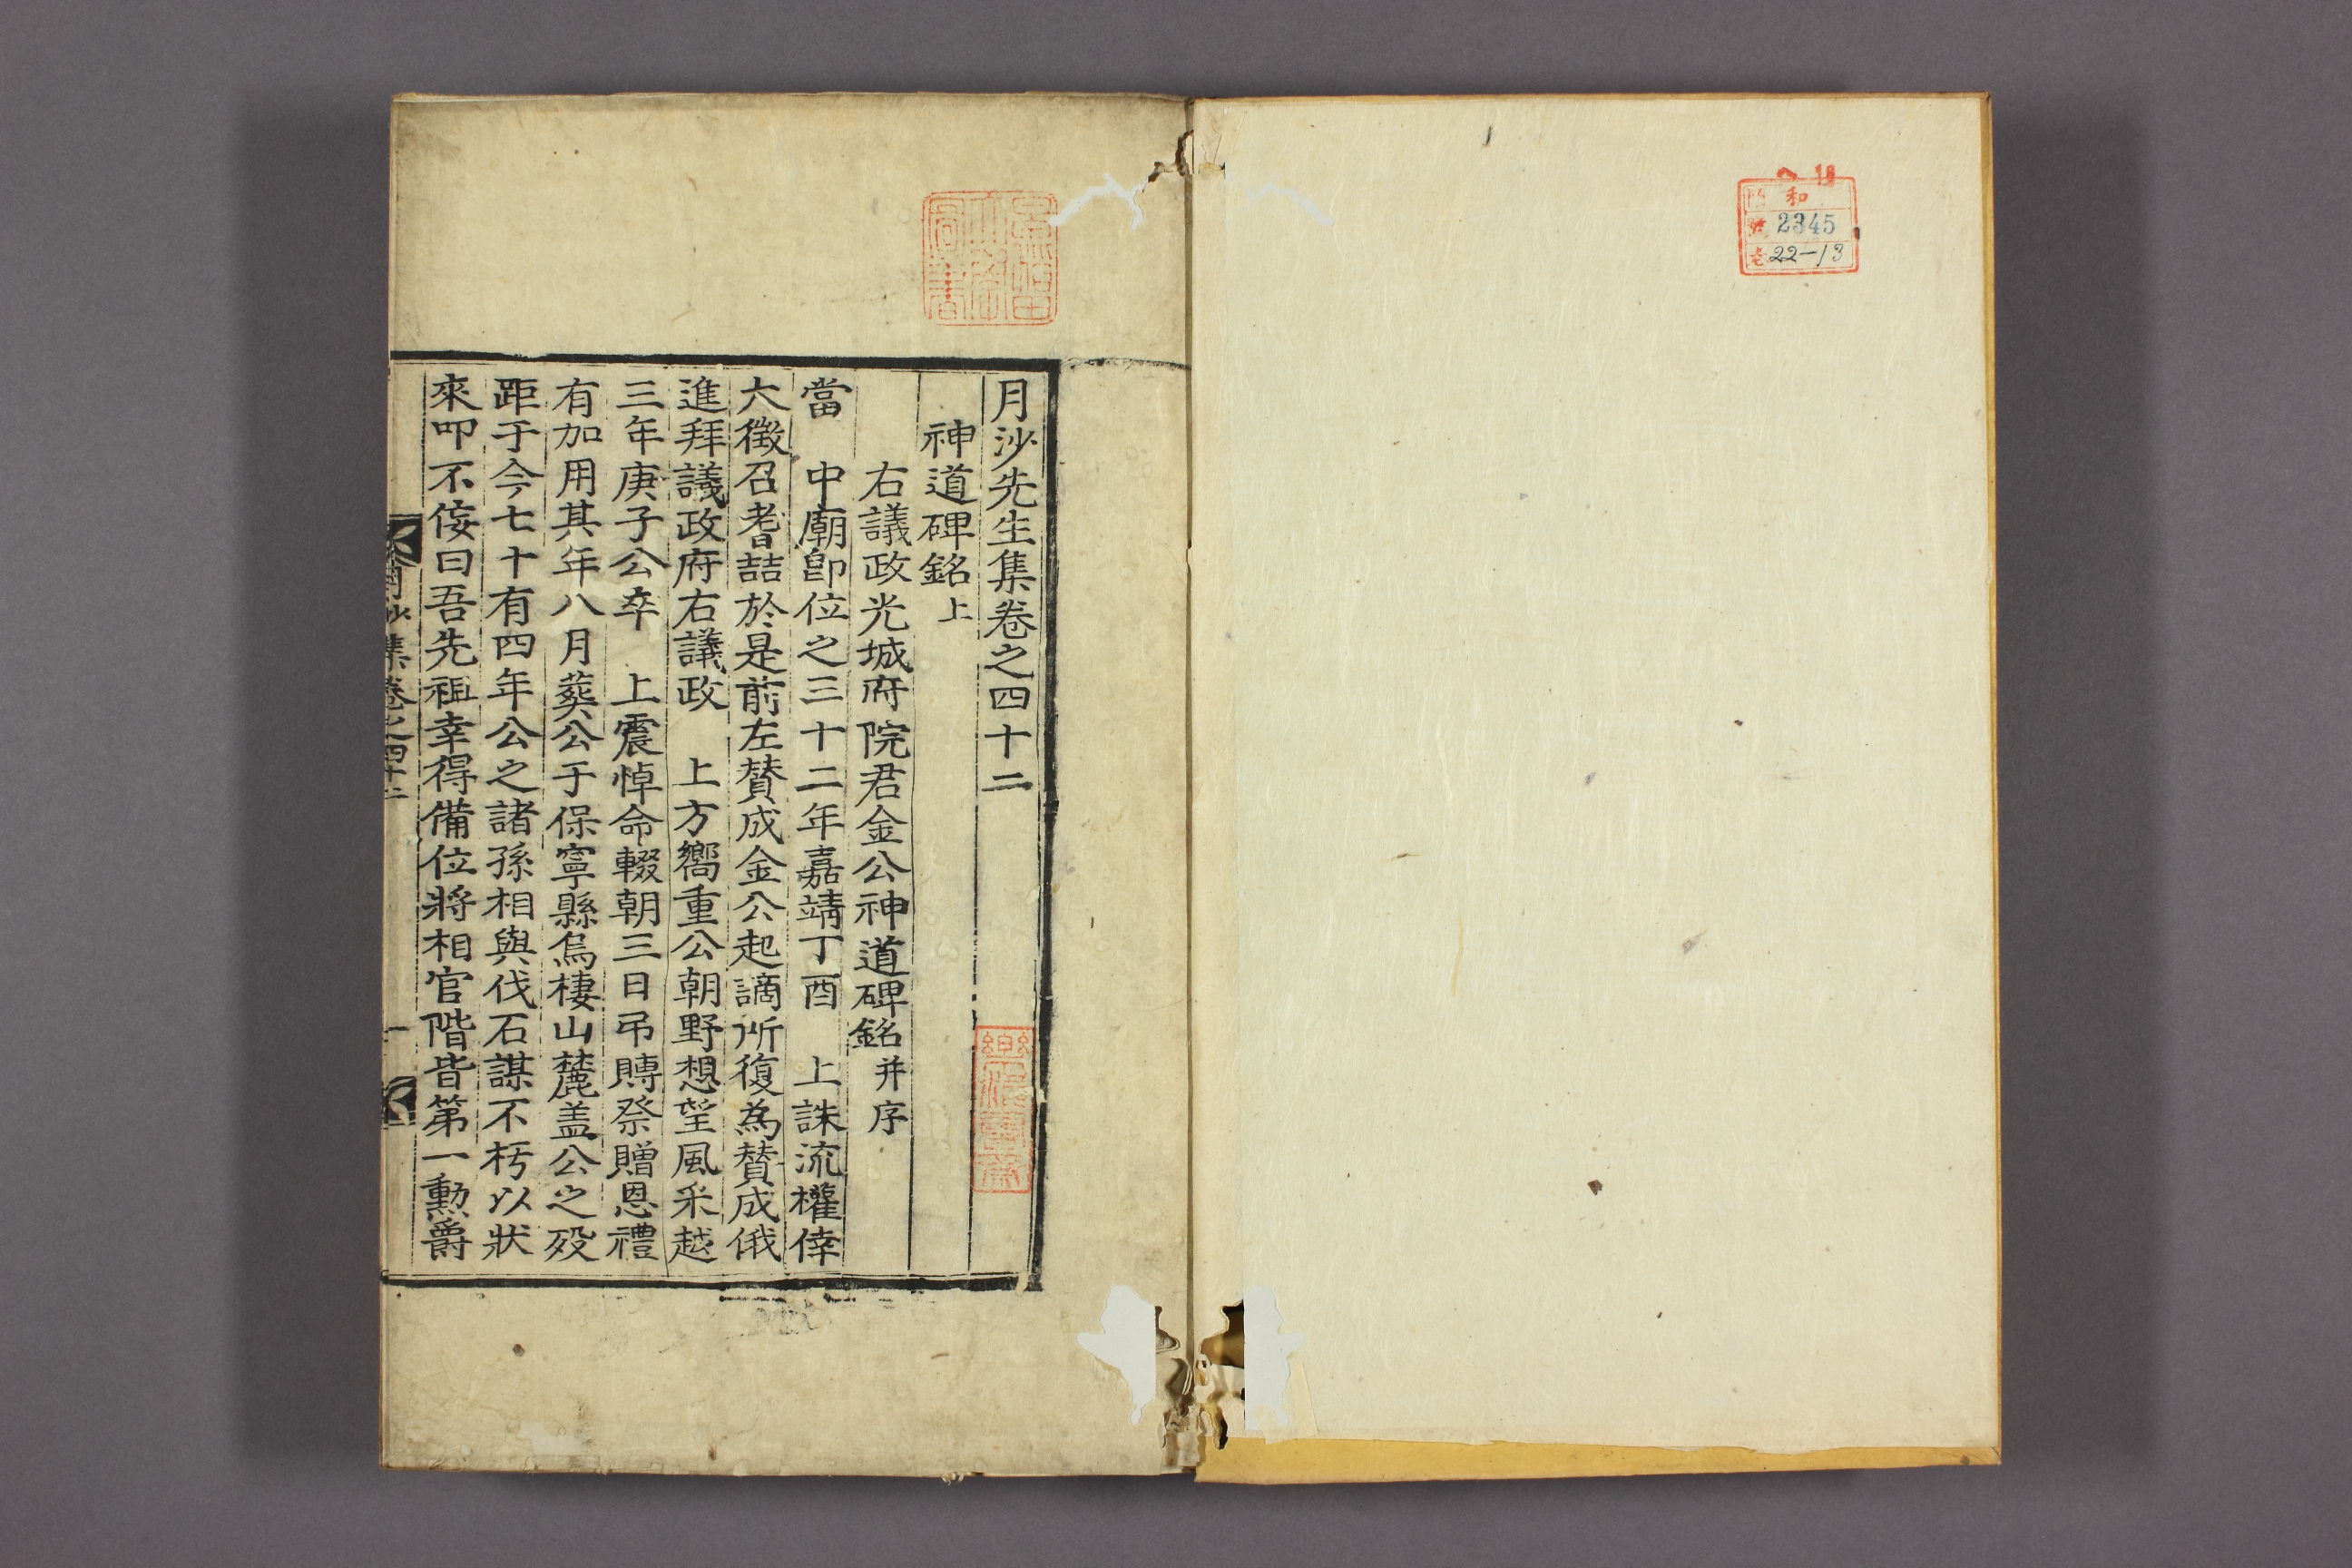 月沙先生集卷之四十二
神道碑銘上
右議政光城府院君金公神道碑銘并序
當　中廟卽位之三十二年嘉靖丁酉　上誅流權倖
大徵召耆喆於是前左賛成金公起謫所復為賛成俄
進拜議政府右議政　上方嚮重公朝野想望風采越
三年庚子公卒　上震悼命輟朝三日弔賻祭贈恩禮
有加用其年八月葬公于保寧縣烏棲山麓盖公之歿
距于今七十有四年公之諸孫相與伐石謀不朽以狀
來叩不佞曰吾先祖幸得備位將相官階皆第一勳爵
月沙集卷之四十二
一
和
2345
22-13